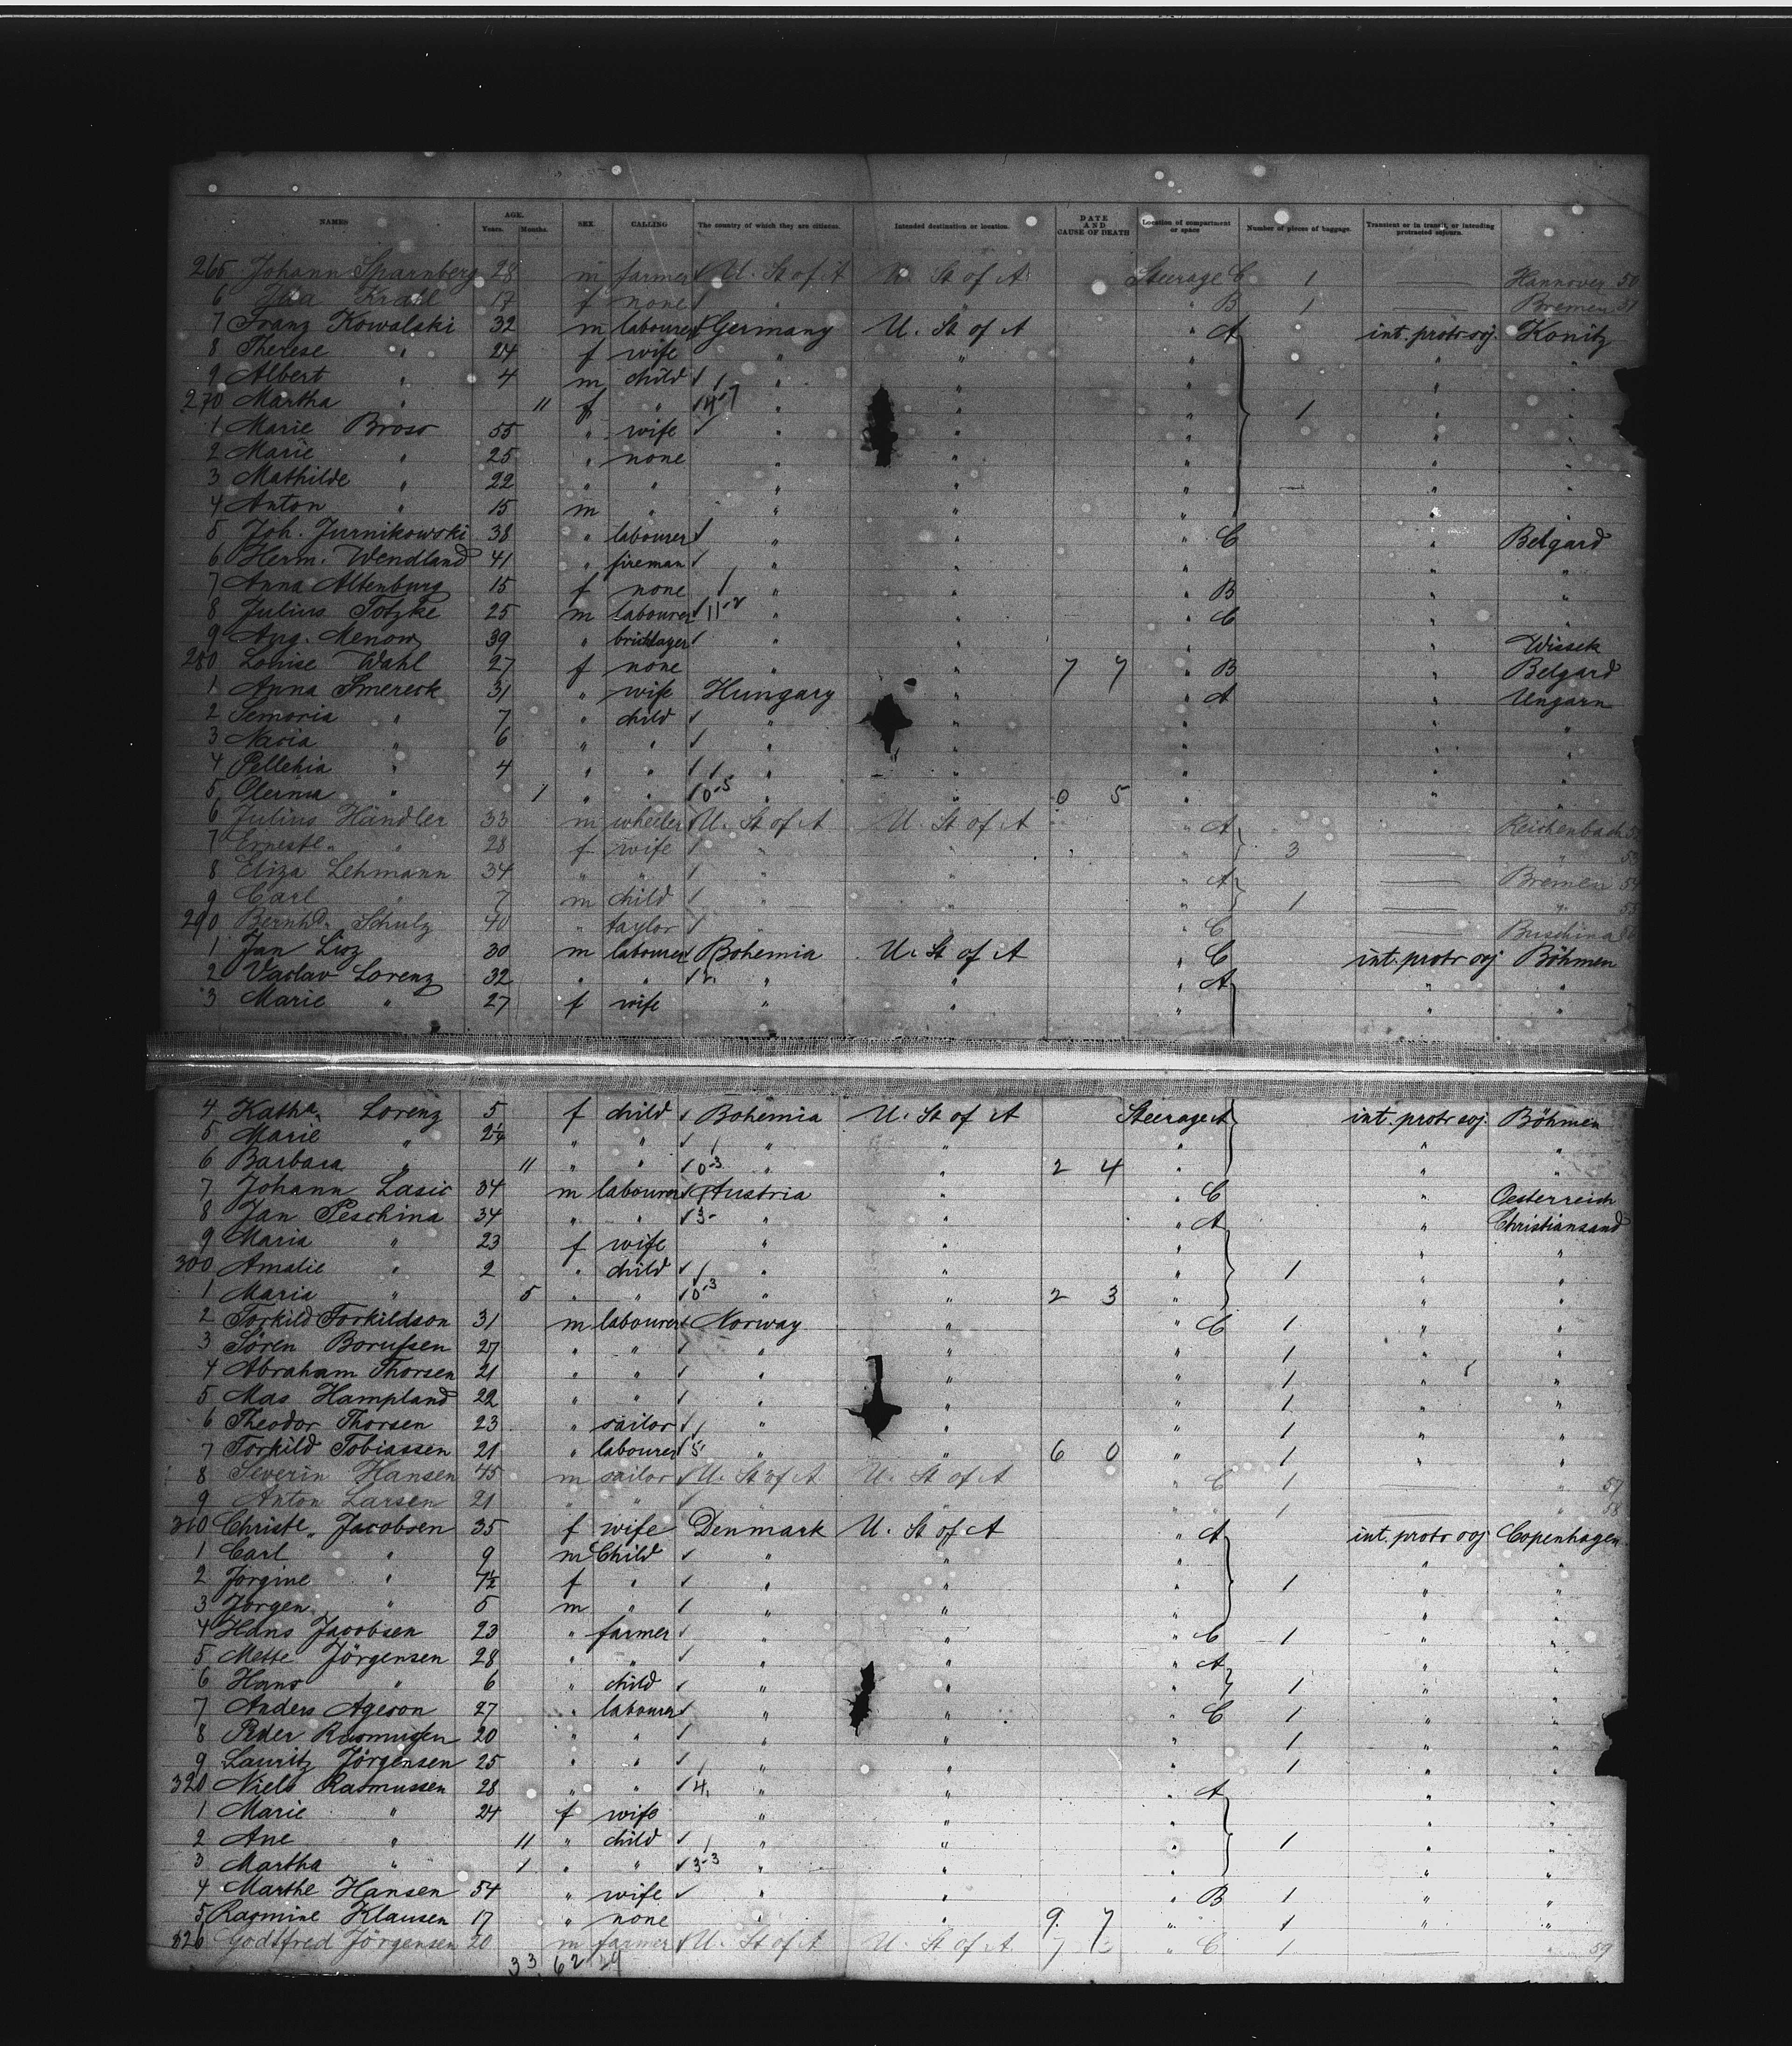 NAMES AGE. Years. Months. SEX CALLING The country of which they are citizens. Intended destination or location. DATE AND CAUSE OF DEATH Location of compartment or space Number of pieces of baggage. Transient or in transit, or intending protracted sojourn.
265 Johann Sparnberg 28 m farmer U. St of A U. St of A Steerage C 1 — Hannover 50
6 Krahl 17 f none " " " B 1 — Bremen 51
7 Franz Kowalski 32 m labourer Germany U. St of A " A int. protr soj. Konitz
8 Therese " 24 f wife " " " " "
9 Albert " 4 m child " " " " "
270 Martha " 11 f " 4-7 " " " 1 " "
1 Marie Brosr 55 " wife " " " " "
2 Marie " 25 " none " " " " "
3 Mathilde " 22 " " " " " — " "
4 Anton " 15 m " " " " " "
5 Joh. Jurnikowski 38 " labourer " " " C " Belgard
6 Herm. Wendland 41 " fireman " " " " "
7 Anna Altenburg 15 f none " " " B " "
8 Julius Totzke 25 m labourer 11-2 " " " C " "
9 Aug. Menow 39 " bricklayer " " " " Wissek
280 Louise Wahl 27 f none " " 7 7 " B " Belgard
1 Anna Smereck 31 " wife Hungary " " A " Ungarn
2 Semoria " 7 " child " " " " "
3 Nacia " 6 " " " " " " "
4 Pellehia " 4 " " " " " " "
5 Olerina " 1 " " 0-5 " " 0 5 " " "
6 Julius Händler 33 m wheeler U. St of A U. St of A " A Reichenbach 52
7 Ernestl. " 28 f wife " " " 3 — " 53
8 Eliza Lehmann 34 " " " " " A — Bremen 54
9 Carl " 7 m child " " " 1 — " 55
290 Bernhd. Schulz 40 " taylor " " " C — Buschina 56
1 Jan Lisz 30 m labourer Bohemia U. St of A " C int. protr soj Böhmen
2 Vaclav Lorenz 32 " " " " " A " "
3 Marie " 27 f wife " " " " "
4 Katha. Lorenz 5 f child Bohemia U. St of A Steerage A int. protr soj. Böhmen
5 Marie " 2¼ " " " " " " "
6 Barbara " 11 " " 0-3 " " 2 4 " " "
7 Johann Lasic 34 m labourer Austria " " C " Oesterreich
8 Jan Peschina 34 " " 3- " " " A " Christiansand
9 Maria " 23 f wife " " " " "
300 Amalie " 2 " child " " " 1 " "
1 Maria " 5 " " 0-3 " " 2 3 " " "
2 Torkild Torkildson 31 m labourer Norway " " C 1 " "
3 Sören Borufsen 27 " " " " " 1 " "
4 Abraham Thorsen 21 " " " " " 1 " "
5 Mas Hampland 22 " " " " " 1 " "
6 Theodor Thorsen 23 " sailor " " " 1 " "
7 Torkild Tobiassen 21 " labourer 5 " " 6 0 " 1 " "
8 Severin Hansen 45 m sailor U. St of A U. St of A " C 1 — " 57
9 Anton Larsen 21 " " " " 1 — " 58
310 Christe. Jacobsen 35 f wife Denmark U. St of A " A int. protr soj Copenhagen
1 Carl " 9 m Child " " " " "
2 Jorgine " 7½ f " " " " 1 " "
3 Jörgen " 5 m " " " " " "
4 Hans Jacobsen 23 " farmer " " " C 1 " "
5 Mette Jörgensen 28 " " " " " A " "
6 Hans " 6 " child " " " 1 " "
7 Anders Ageson 27 " labourer " " " C 1 " "
8 Peder Rasmussen 20 " " " " " 1 " "
9 Lauritz Jörgensen 25 " " " " " 1 " "
320 Niels Rasmussen 28 " " 4, " " " A " "
1 Marie " 24 f wife " " " " "
2 Ane " 11 " child " " " 1 " "
3 Martha " 1 " " 3-3 " " " " "
4 Marthe Hansen 54 " wife " " " B 1 " "
5 Rasmine Klausen 17 " none " " 9. 7 " " 1 " "
326 Godtfred Jörgensen 20 m farmer U. St of A U. St of A " C 1 — " 59
33 62 24